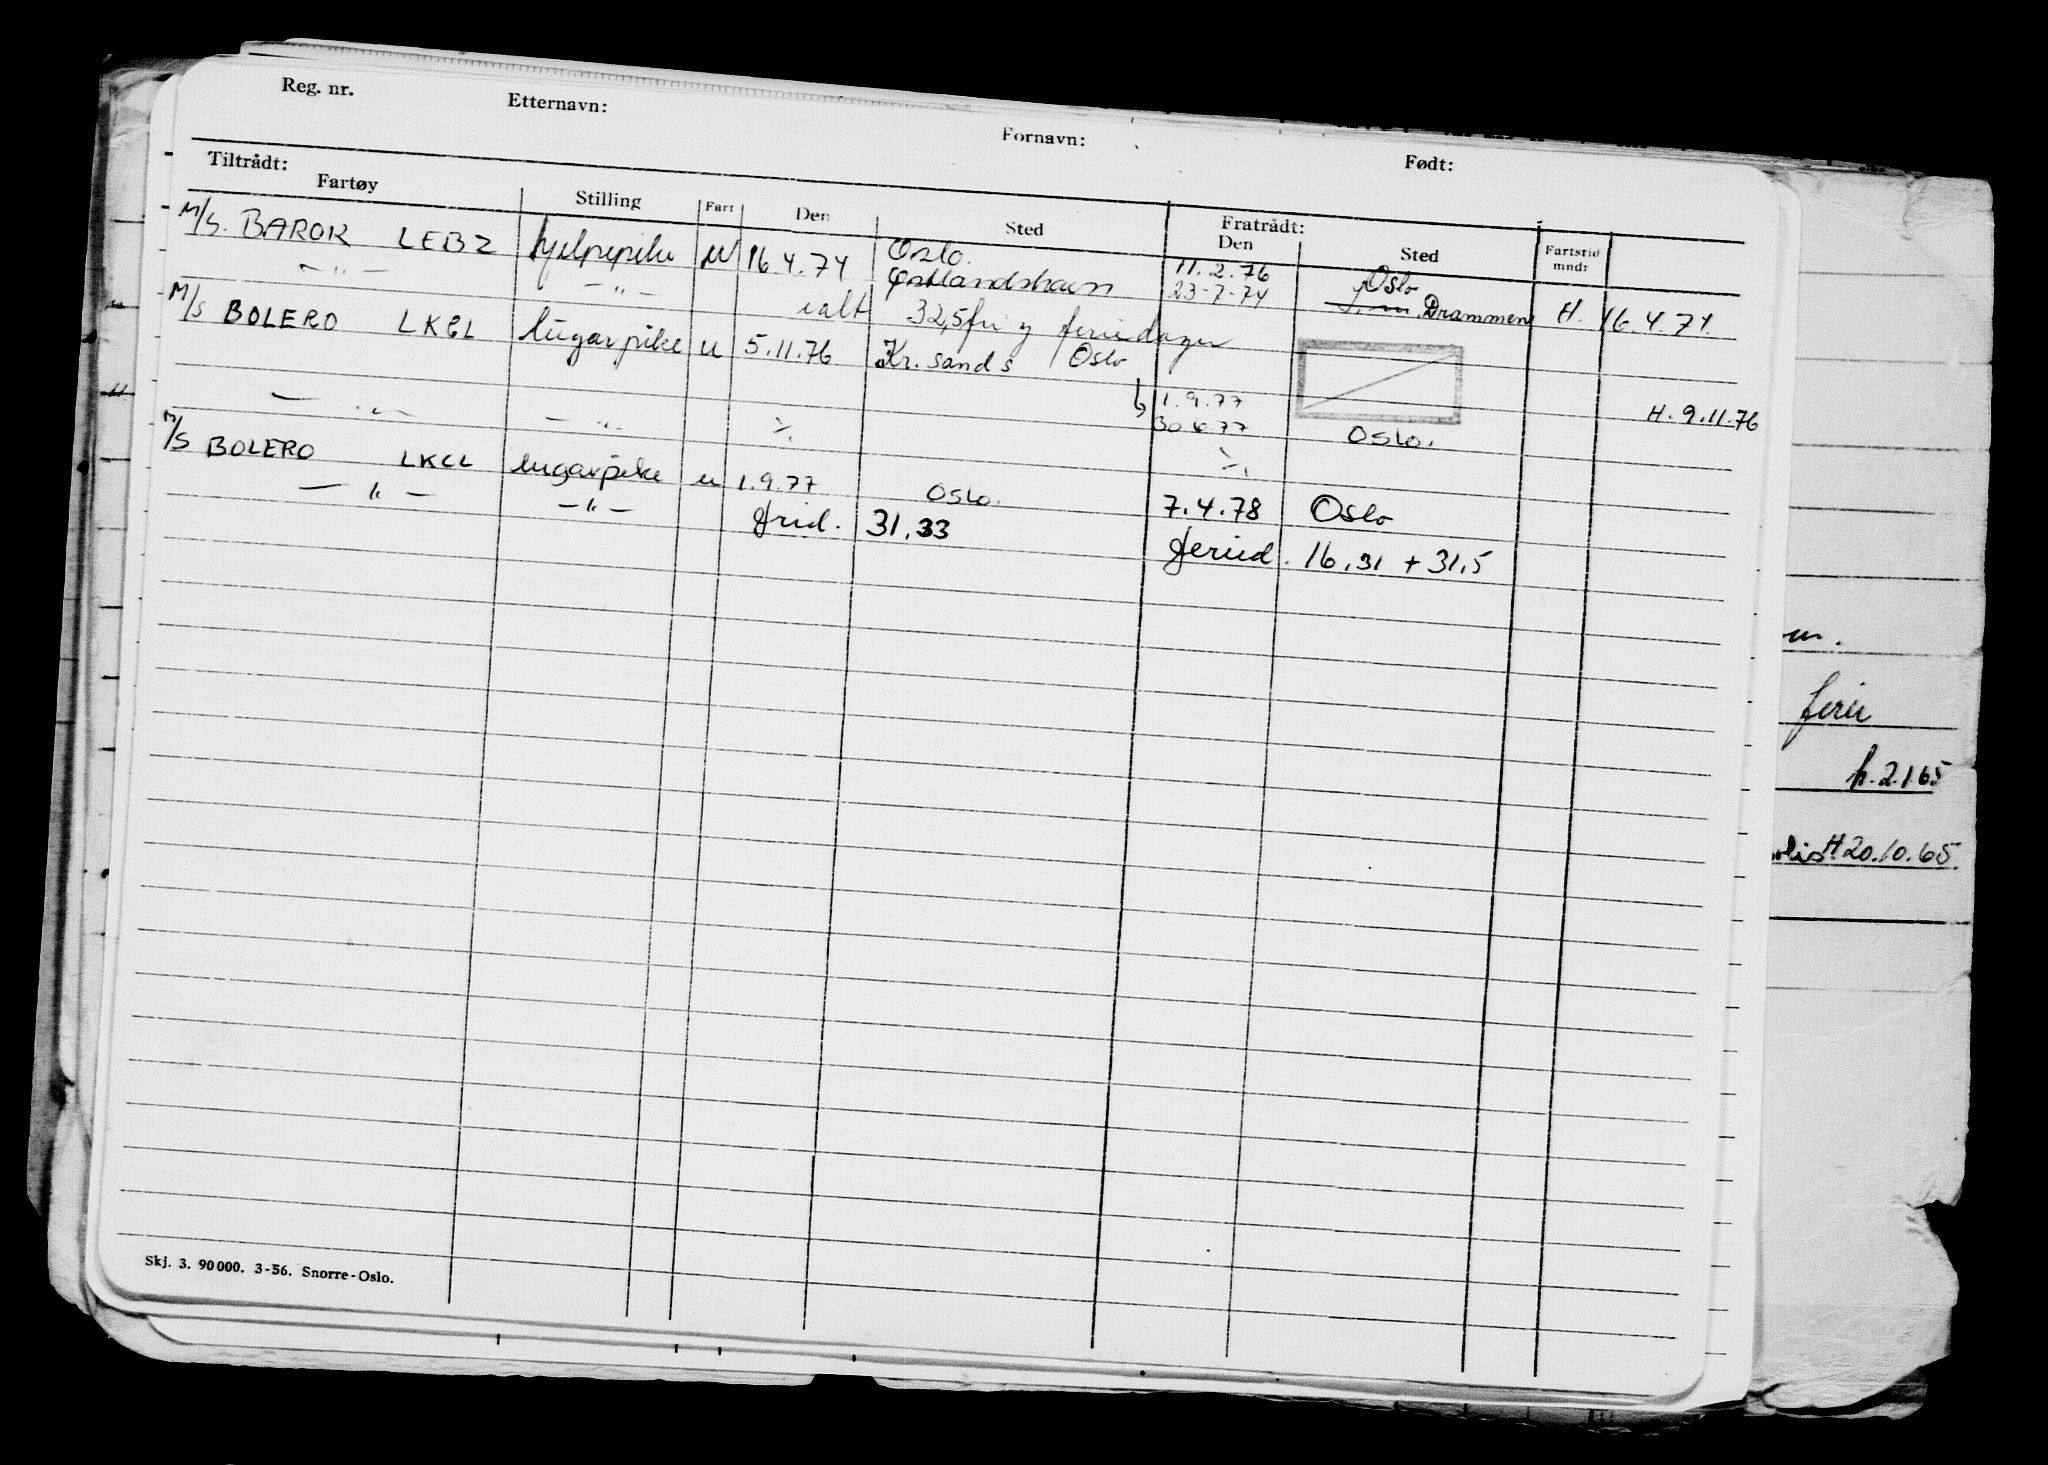 Reg. nr. Etternavn: Fornavn: Født:
Tiltrådt: Fratrådt:
Fartøy Stilling Fart Den Sted Den Sted Fartstid mndr
M/S. BAROK LEBZ hjelpepike U 16.4.74 Oslo. 11.2.76 Oslo
— " — — " — Østlandshavn 23-7-74 Drammen H. 16.4.74.
ialt 32,5 fri og feriedager
M/S BOLERO LKCL lugarpike u 5.11.76 Kr.sands Oslo
1.9.77 H. 9.11.76
— " — — " — ·/. 30.6.77 Oslo.
·/.
M/S BOLERO LKCL lugarpike u 1.9.77 Oslo. 7.4.78 Oslo
— " — — " — frid. 31.33 feried. 16.31 + 31,5
ferie
h. 2.1.65
H 20.10.65
Skj. 3. 90000. 3-56. Snorre-Oslo.